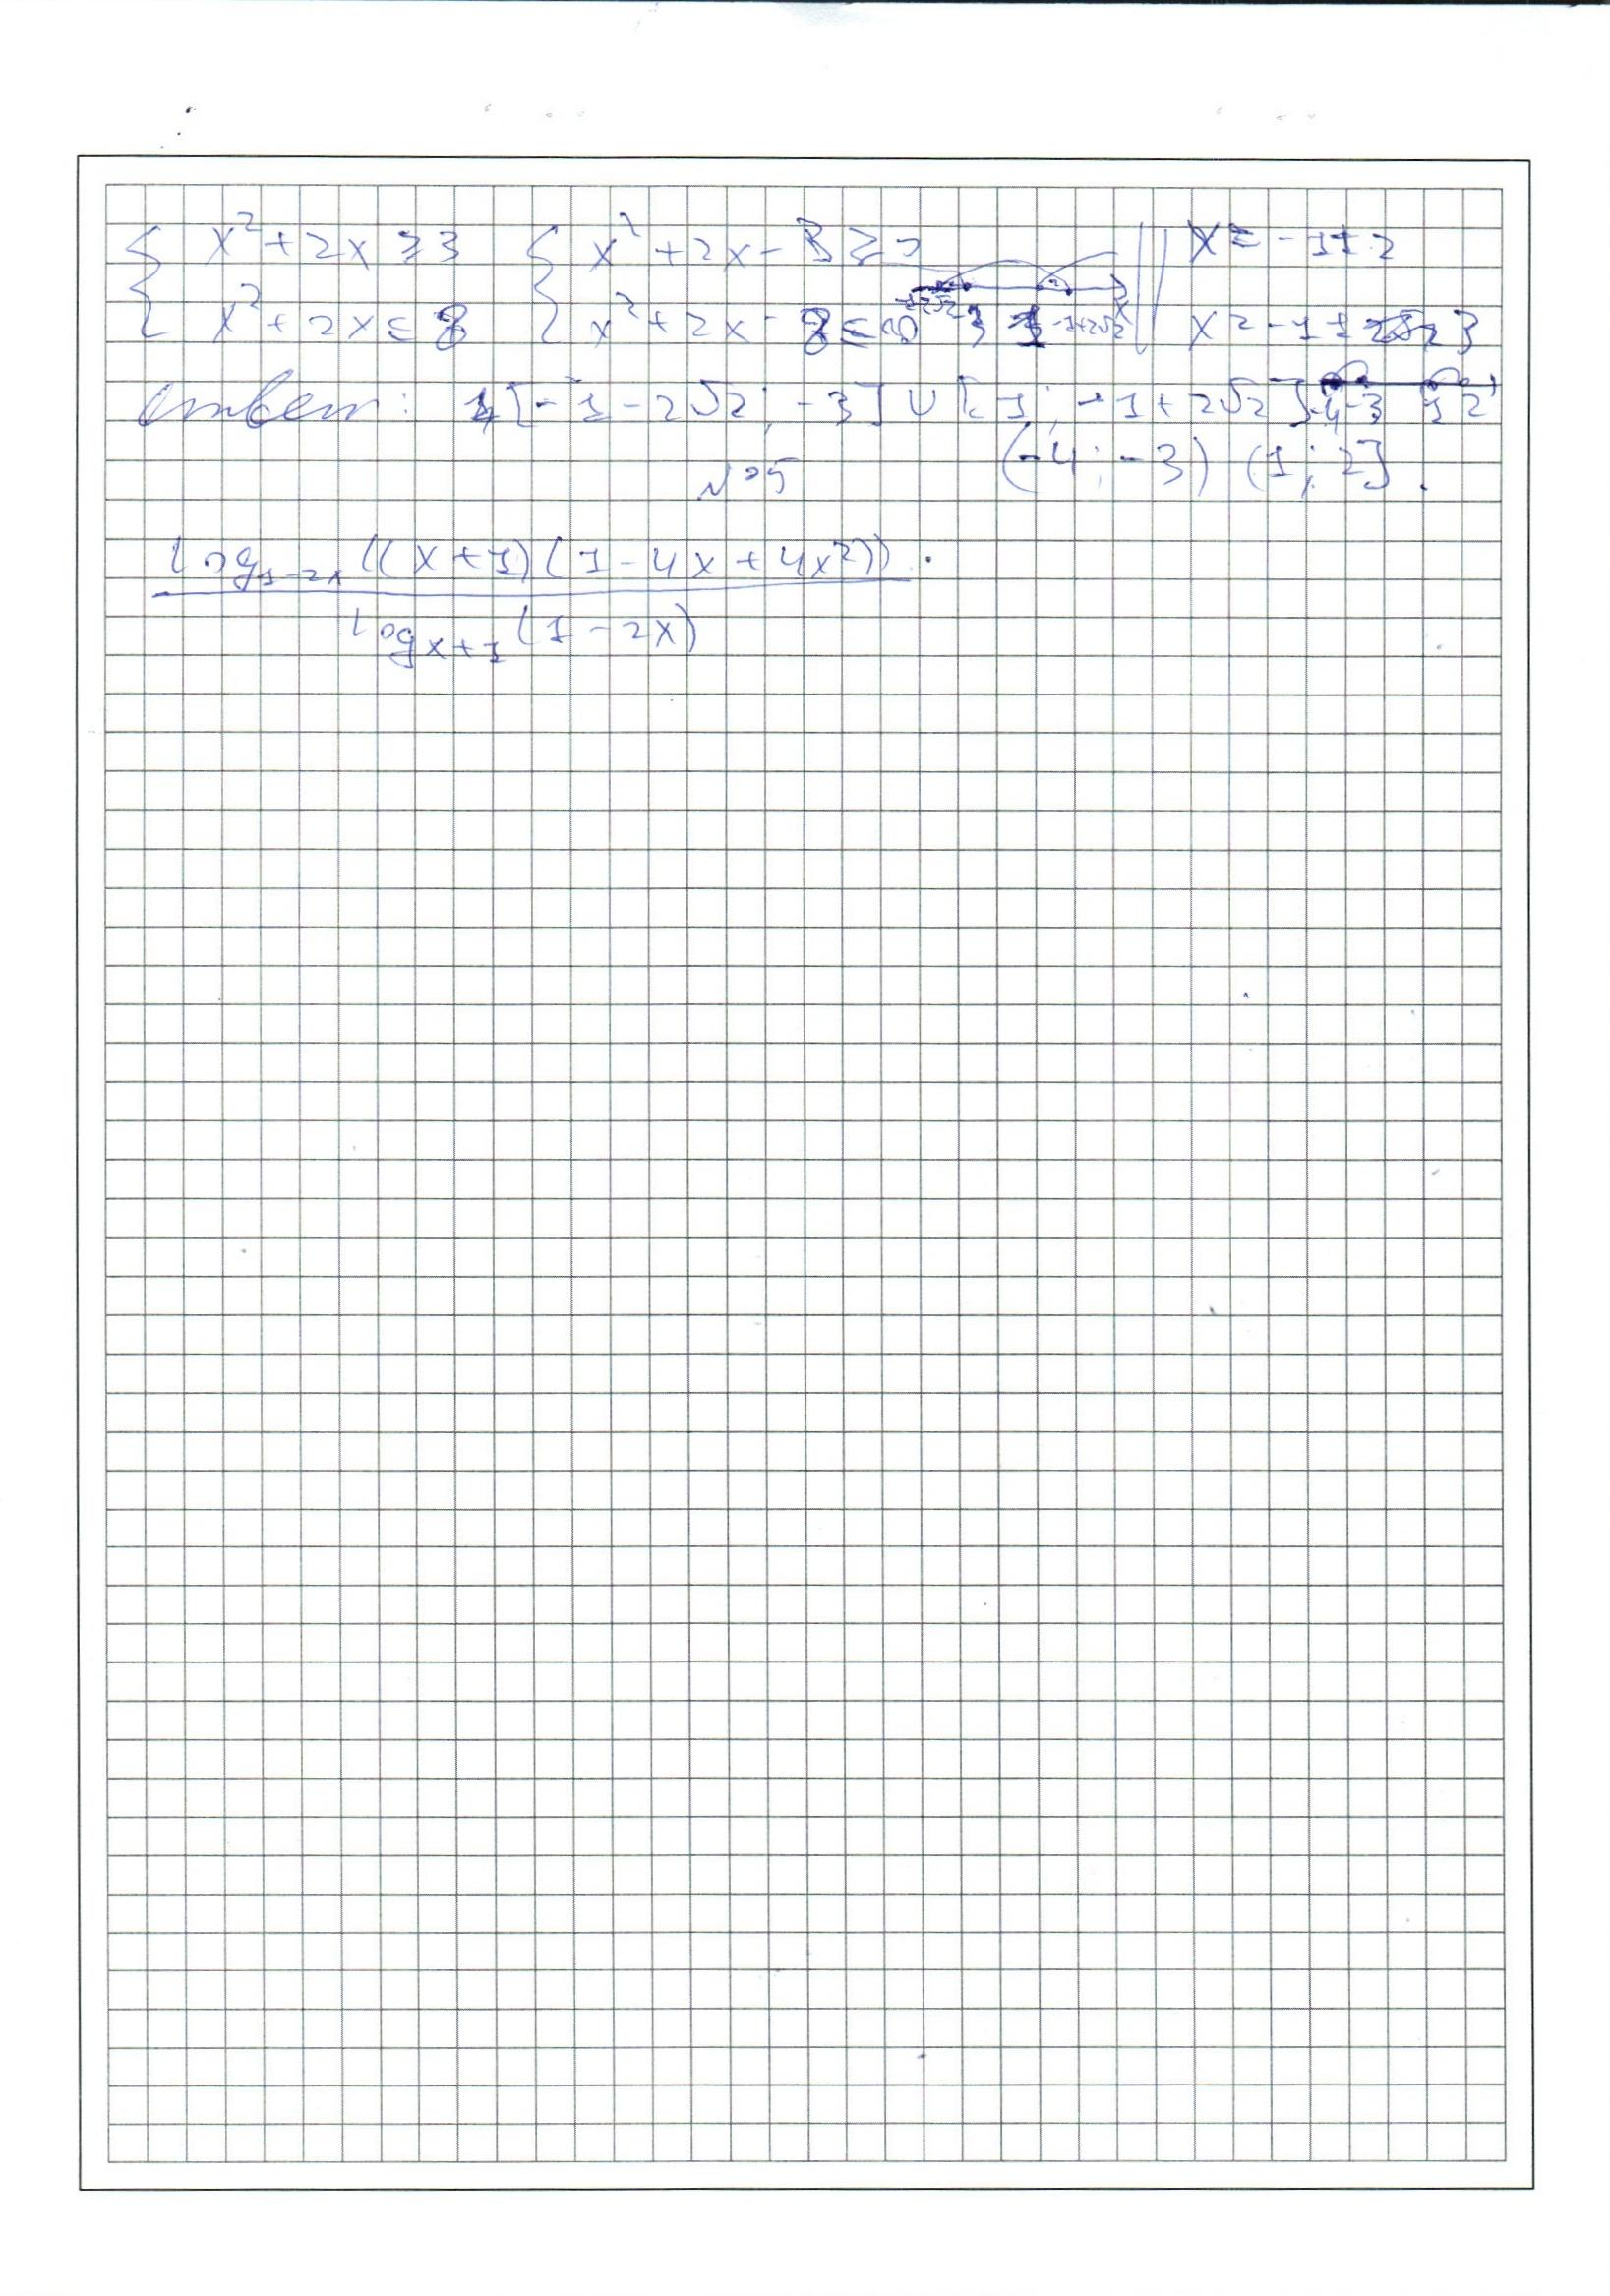 { x² + 2x ≥ 3 { x² + 2x - 3 ≥ 0 x = -1 ± 2
{ x² + 2x ≤ 8 { x² + 2x - 8 ≤ 0 -3 1 -1+2√2 x x = -1 ± 3
Ответ: [-1-2√2; -3] ∪ [1; -1+2√2] -4 -3 1 2
(-4; -3) (1; 2].
№5
log₁₋₂ₓ((x+1)(1-4x+4x²)) .
logₓ₊₁(1-2x)